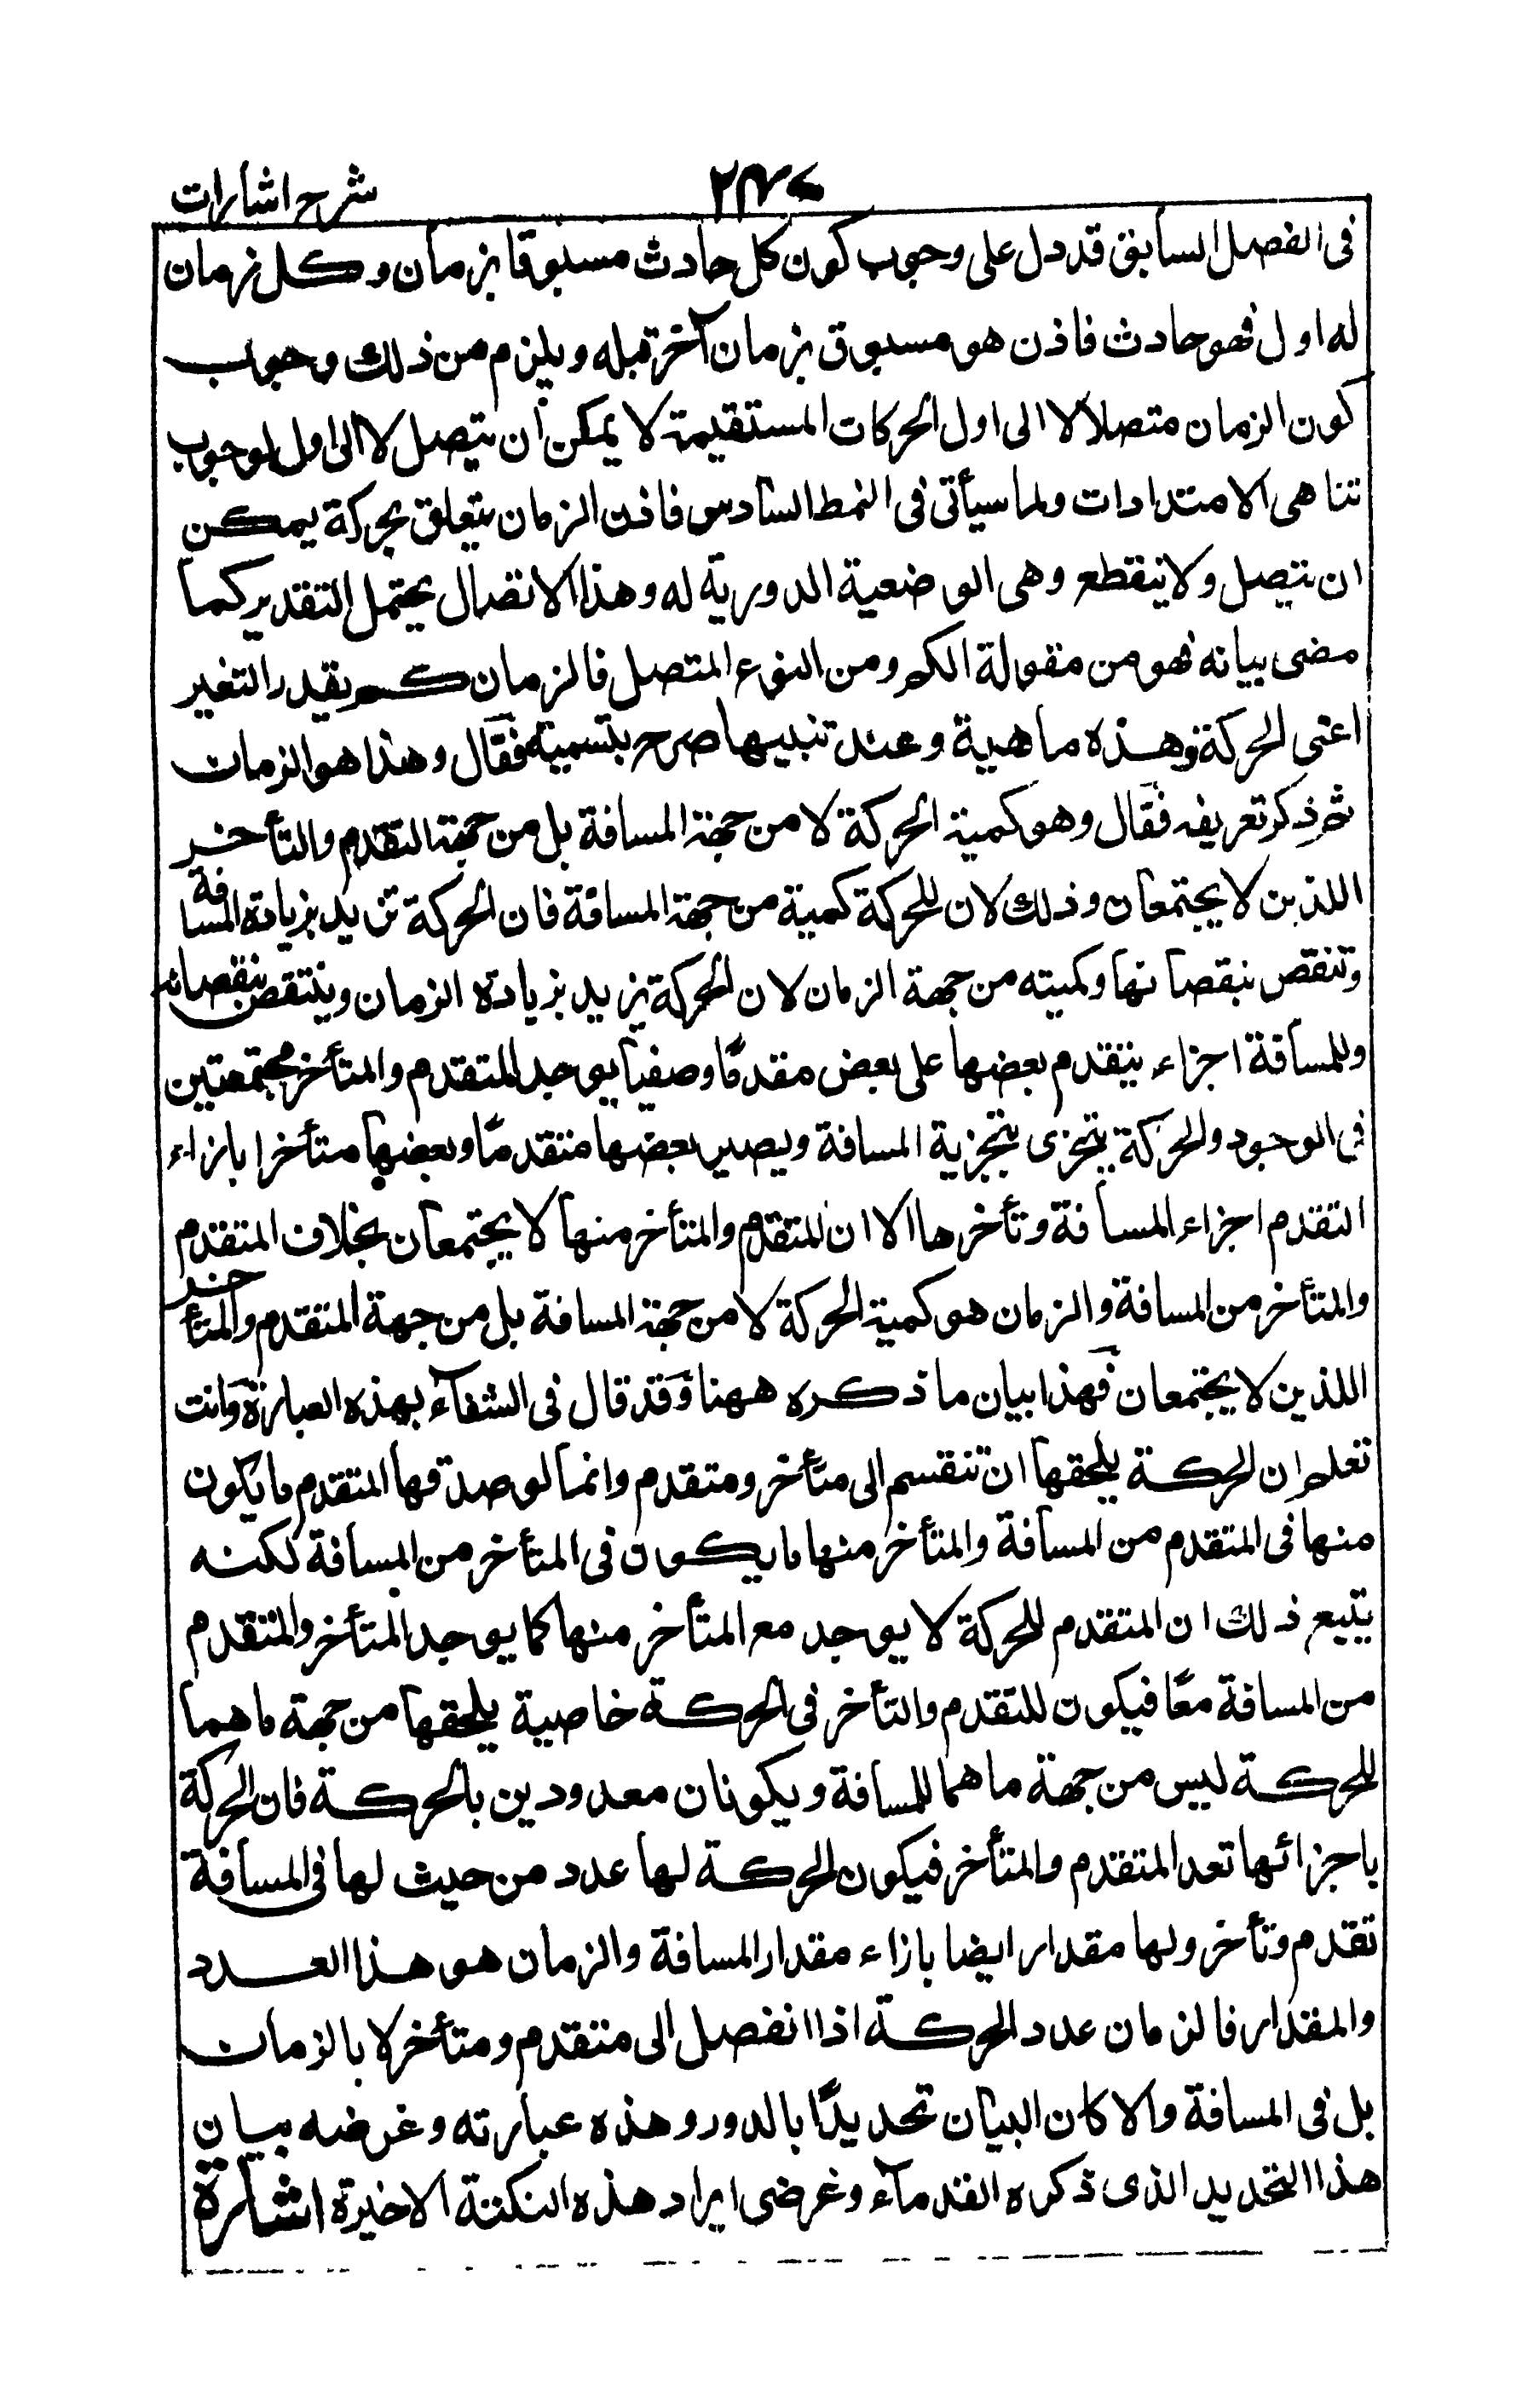 شرح اشارات
٢٤٧
فى الفصل السابق قد دل على وجوب كون كل حادث مسبوقا بزمان وكل زمان
له اول فهو حادث فاذن هو مسبوق بزمان آخر قبله ويلزم من ذلك وجوب
كون الزمان متصلا لا الى اول الحركات المستقيمة لا يمكن أن يتصل لا الى اول لوجوب
تناهى الامتدادات ولما سيأتى فى النمط السادس فاذن الزمان يتعلق بحركة يمكن
ان يتصل ولا ينقطع وهى الوضعية الدورية له وهذا الاتصال يحتمل التقدير كما
مضى بيانه فهو من مقولة الكم ومن النوع المتصل فالزمان كم يقدر التغير
اعنى الحركة وهذه ماهية وعند تنبيها صرح بتسميته فقال وهذا هو الزمان
ثم ذكر تعريفه فقال وهو كمية الحركة لا من جهة المسافة بل من جهة التقدم والتأخر
اللذين لا يجتمعان وذلك لان للحركة كمية من جهة المسافة فان الحركة تزيد بزيادة المسافة
وتنقص بنقصانها وكميته من جهة الزمان لان الحركة يزيد بزيادة الزمان وينتقص بنقصانه
وللمسافة اجزاء يتقدم بعضها على بعض مقدمًا وصفيا يوجد المتقدم والمتأخر مجتمعتين
فى الوجود والحركة يتجزى بتجزية المسافة ويصير بعضها متقدمًا وبعضها متأخرا بازاء
التقدم اجزاء المسافة وتأخرها الا ان المتقدم والمتأخر منها لا يجتمعان بخلاف المتقدم
والمتأخر من المسافة والزمان هو كمية الحركة لا من جهة المسافة بل من جهة المتقدم والمتأخر
اللذين لا يجتمعان فهذا بيان ما ذكره ههنا وقد قال فى الشفآء بهذه العبارة وانت
تعلم ان الحركة يلحقها ان تنقسم الى متأخر ومتقدم وانما لوصدقها المتقدم ما يكون
منها فى المتقدم من المسافة والمتأخر منها ما يكون فى المتأخر من المسافة لكنه
يتبع ذلك ان المتقدم للحركة لا يوجد مع المتأخر منها كما يوجد المتأخر والمتقدم
من المسافة معًا فيكون للتقدم والتأخر فى الحركة خاصية يلحقها من جهة ما هما
للحركة ليس من جهة ما هما للمسافة ويكونان معدودين بالحركة فان الحركة
باجزائها تعد المتقدم والمتأخر فيكون الحركة لها عدد من حيث لها فى المسافة
تقدم وتأخر ولها مقدار ايضا بازاء مقدار المسافة والزمان هو هذا العدد
والمقدار فالزمان عدد الحركة اذا انفصل الى متقدم ومتأخر لا بالزمان
بل فى المسافة والا كان البيان تحديدًا بالدور وهذه عبارته وغرضه بيان
هذا التحديد الذى ذكره القدمآء وغرضى ايراد هذه النكتة الاخيرة اشارة